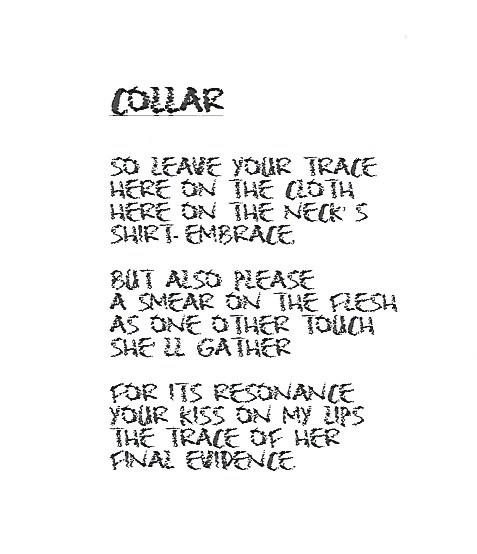 COLLAR
SO LEAVE YOUR TRACE
HERE ON THE CLOTH
HERE ON THE NECK'S
SHIRT-EMBRACE.
BUT ALSO PLEASE
A SMEAR ON THE FLESH
AS ONE OTHER TOUCH
SHE'LL GATHER
FOR ITS RESONANCE
YOUR KISS ON MY LIPS
THE TRACE OF HER
FINAL EVIDENCE.